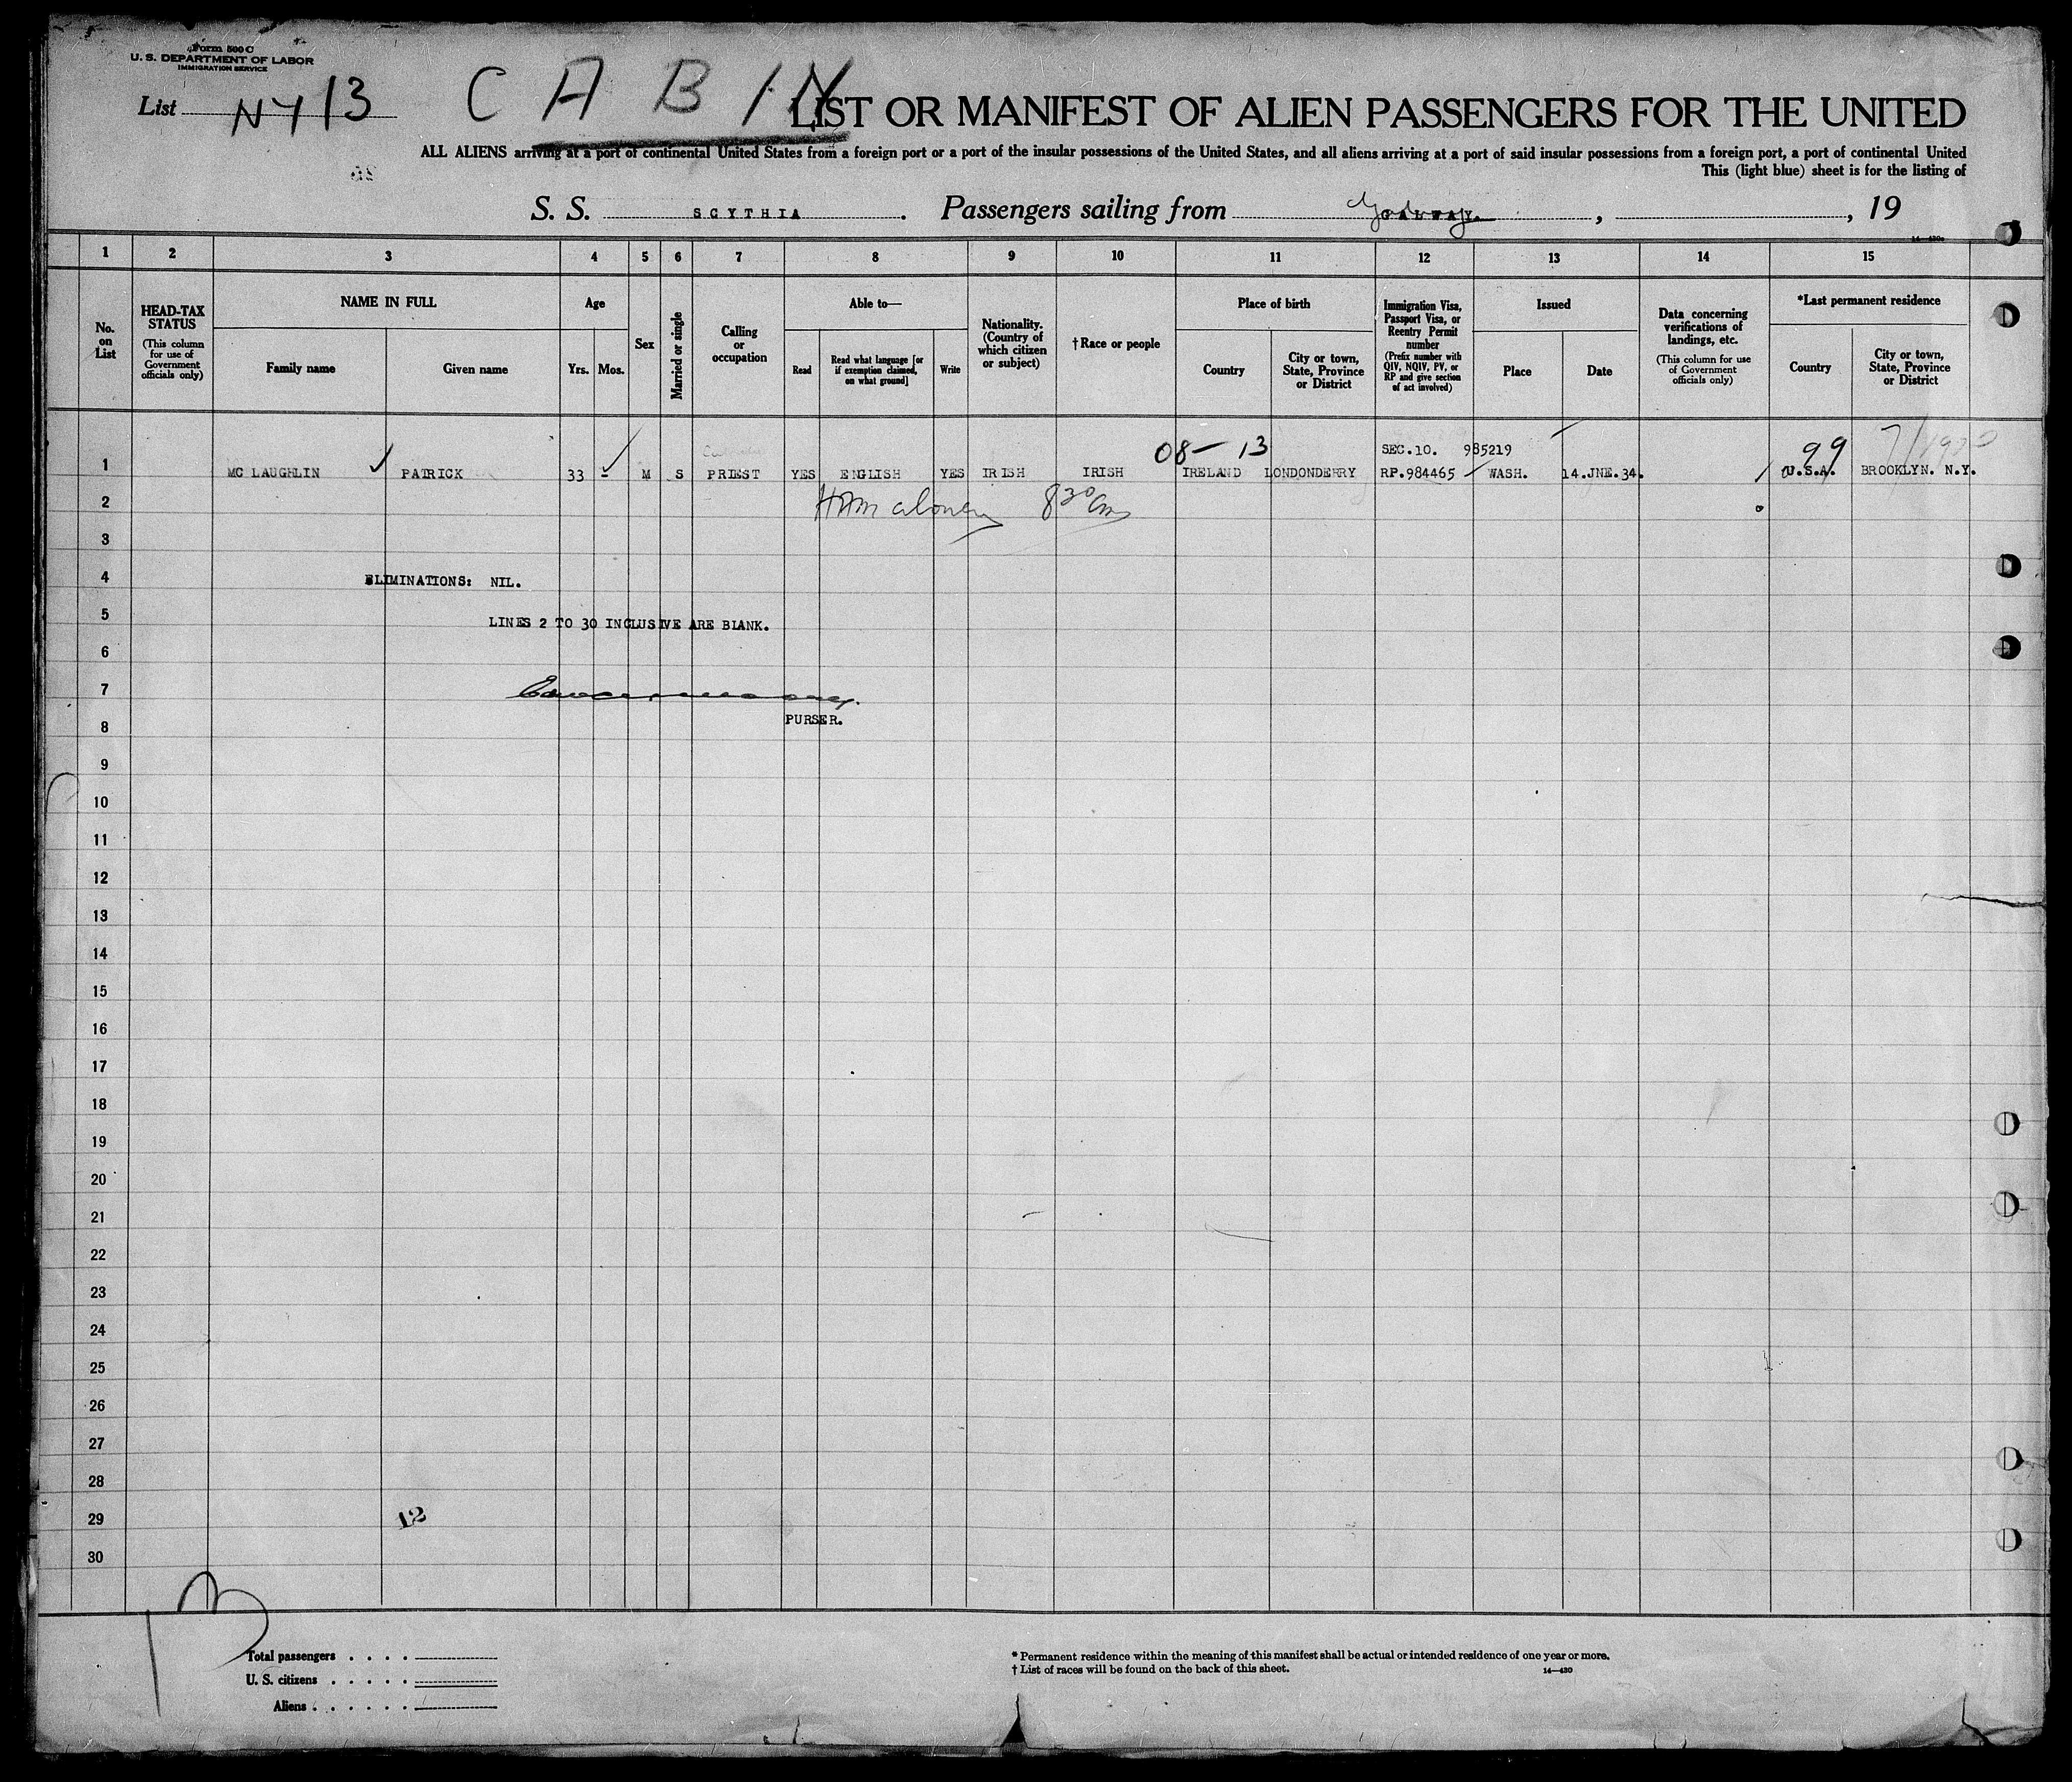 Form 500 C
U. S. DEPARTMENT OF LABOR
IMMIGRATION SERVICE
List NY 13
CABIN
LIST OR MANIFEST OF ALIEN PASSENGERS FOR THE UNITED
ALL ALIENS arriving at a port of continental United States from a foreign port or a port of the insular possessions of the United States, and all aliens arriving at a port of said insular possessions from a foreign port, a port of continental United
This (light blue) sheet is for the listing of
S. S. SCYTHIA . Passengers sailing from GALWAY. , , 19
1 2 3 4 5 6 7 8 9 10 11 12 13 14 15
No. on List
HEAD-TAX STATUS (This column for use of Government officials only)
NAME IN FULL
Family name
Given name
Age
Yrs.
Mos.
Sex
Married or single
Calling or occupation
Able to—
Read
Read what language [or if exemption claimed, on what ground]
Write
Nationality. (Country of which citizen or subject)
†Race or people
Place of birth
Country
City or town, State, Province or District
Immigration Visa, Passport Visa, or Reentry Permit number (Prefix number with QIV, NQIV, PV, or RP and give section of act involved)
Issued
Place
Date
Data concerning verifications of landings, etc. (This column for use of Government officials only)
*Last permanent residence
Country
City or town, State, Province or District
08-13 SEC.10. 985219 99
1 MC LAUGHLIN PATRICK 33 - M S PRIEST YES ENGLISH YES IRISH IRISH IRELAND LONDONDERRY RP.984465 WASH. 14.JNE.34. U.S.A. BROOKLYN. N.Y.
2 8 30 am
3
4 ELIMINATIONS: NIL.
5 LINES 2 TO 30 INCLUSIVE ARE BLANK.
6
7
8 PURSER.
9
10
11
12
13
14
15
16
17
18
19
20
21
22
23
24
25
26
27
28
29 12
30
13
Total passengers . . . .
U. S. citizens . . . . .
Aliens . . . . . .
* Permanent residence within the meaning of this manifest shall be actual or intended residence of one year or more.
† List of races will be found on the back of this sheet. 14—430